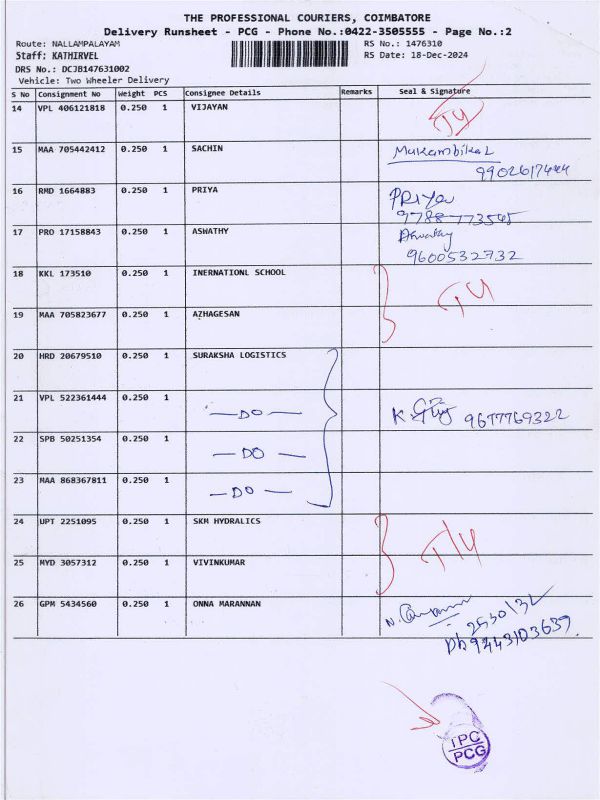 THE PROFESSIONAL COURIERS, COIMBATORE
Delivery Runsheet - PCG - Phone No.:0422-3505555 - Page No.:2
Route: NALLAMPALAYAM RS No.: 1476310
Staff: KATHIRVEL RS Date: 18-Dec-2024
DRS No.: DCJB147631002
Vehicle: Two Wheeler Delivery
S No Consignment No Weight PCS Consignee Details Remarks Seal & Signature
14 VPL 406121818 0.250 1 VIJAYAN
15 MAA 705442412 0.250 1 SACHIN Mukambikal
9902617444
16 RMD 1664883 0.250 1 PRIYA PRiya
9788773545
17 PRO 17158843 0.250 1 ASWATHY Aswathy
9600532732
18 KKL 173510 0.250 1 INERNATIONL SCHOOL
19 MAA 705823677 0.250 1 AZHAGESAN
20 HRD 20679510 0.250 1 SURAKSHA LOGISTICS
21 VPL 522361444 0.250 1 — DO — K 9677769322
22 SPB 50251354 0.250 1 — DO —
23 MAA 868367811 0.250 1 — DO —
24 UPT 2251095 0.250 1 SKM HYDRALICS
25 MYD 3057312 0.250 1 VIVINKUMAR
26 GPM 5434560 0.250 1 ONNA MARANNAN N.
Ph 9443103639
TPC
PCG